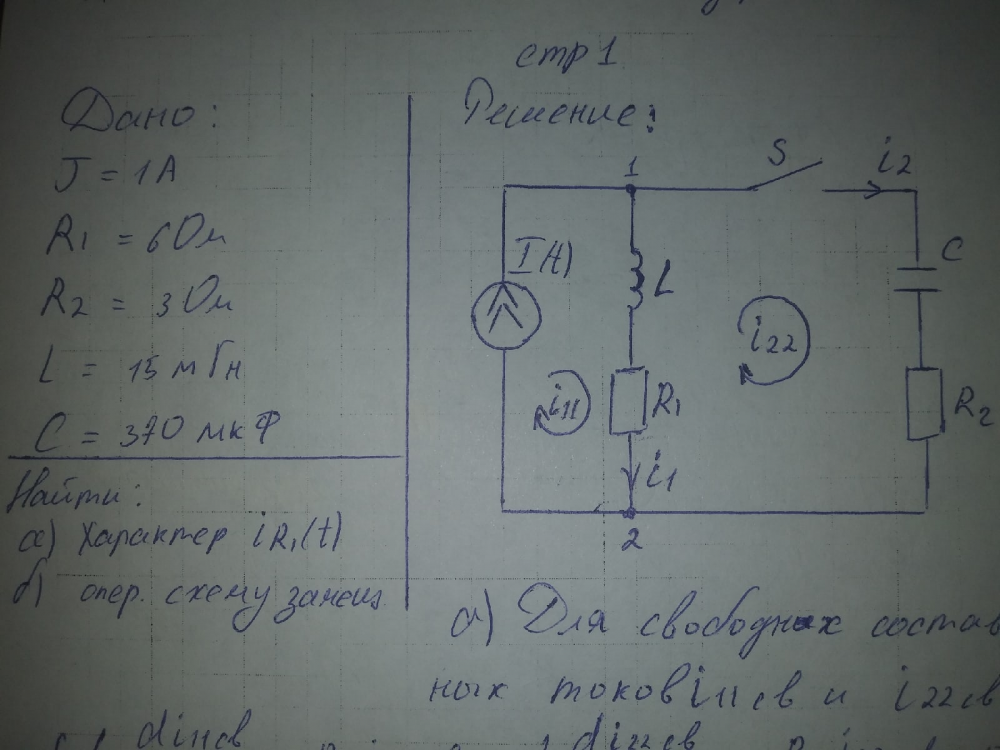 стр 1
Дано:
J = 1А
R1 = 6 Ом
R2 = 3 Ом
L = 15 мГн
C = 370 мкФ
Найти:
а) Характер iR1(t)
б) опер. схему замещ.
Решение:
1
S
i2
I(t)
L
C
i22
i11
R1
R2
i1
2
а) Для свободных состав
ных токов i11св и i22св
di11св
di22св